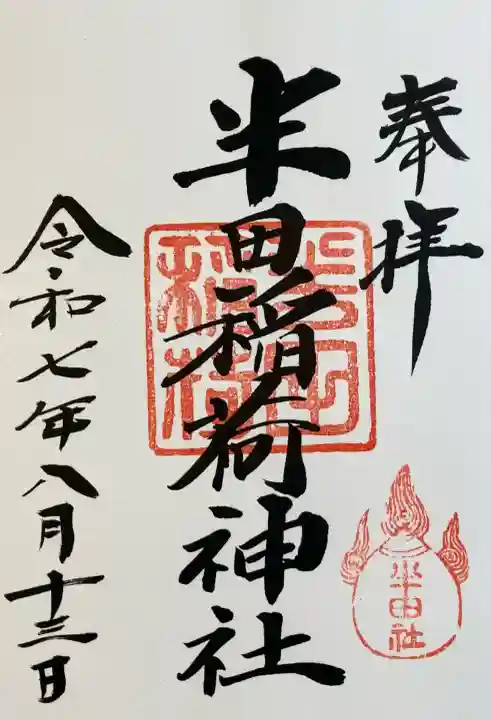 奉拝
半田稲荷神社
半田社
令和七年八月十三日